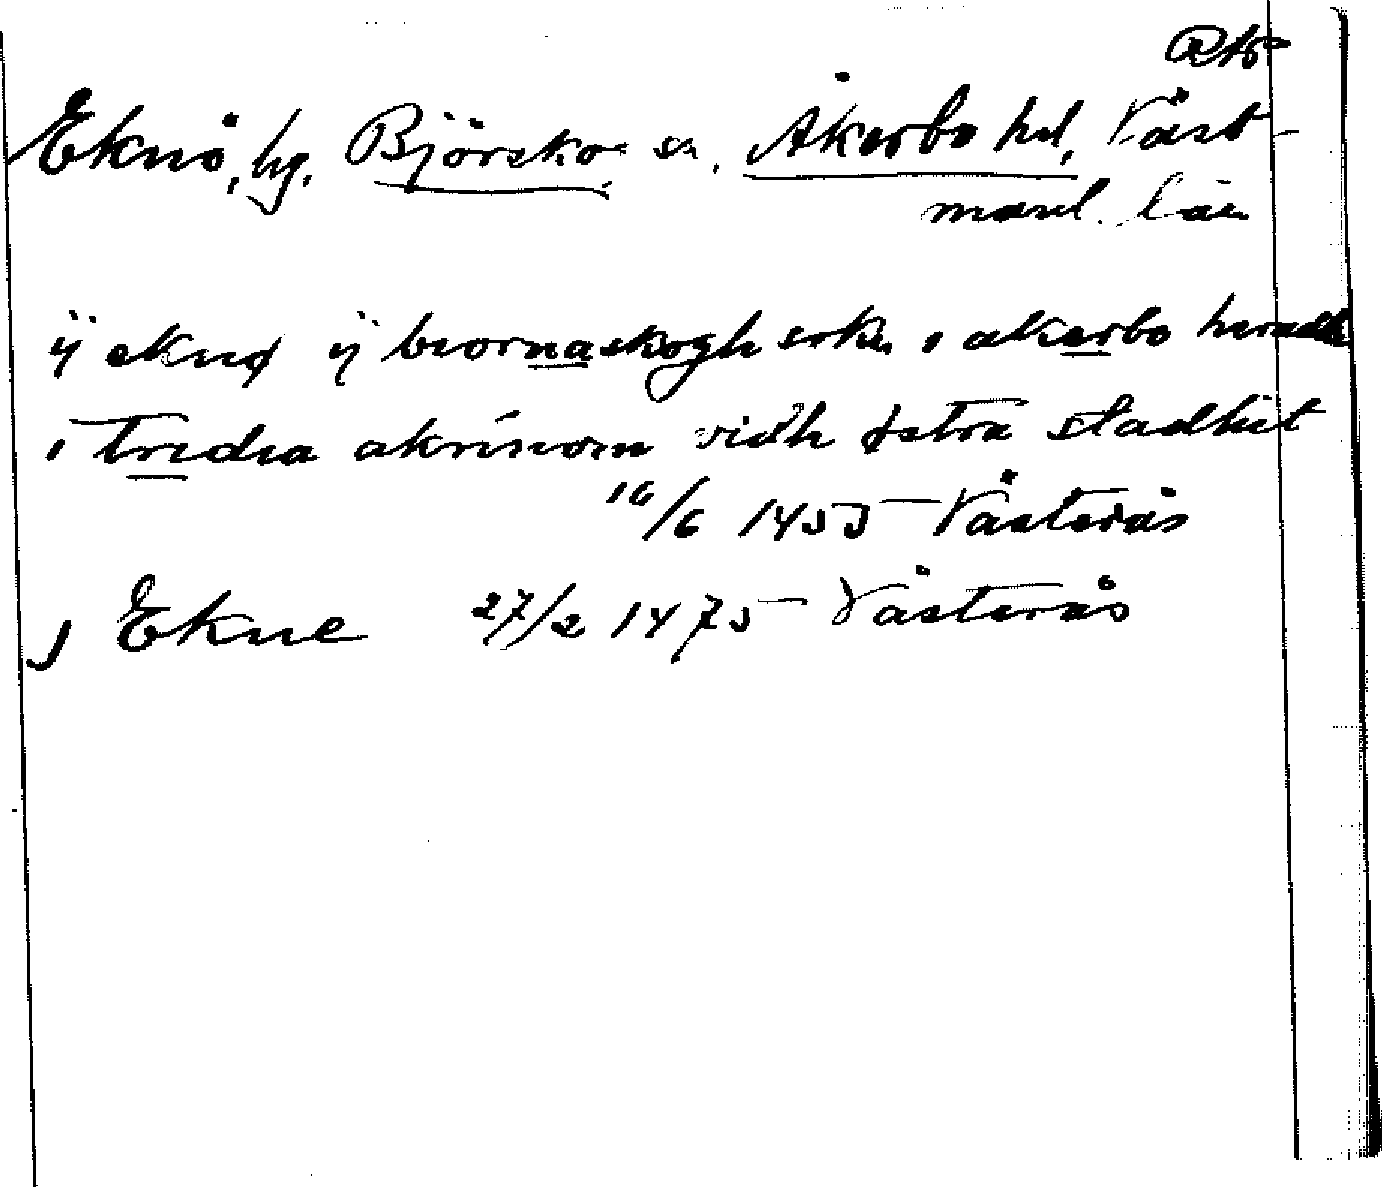 Eknö, by, Björsko sn, Åkerbo hd, Väst-
manl. län
ij eknø ij biornaskogh sokn i akerbo hæradh
i tredia akrinom vidh østra stadhit
16/6 1455 Västerås
J Ekne 27/2 1475 Västerås